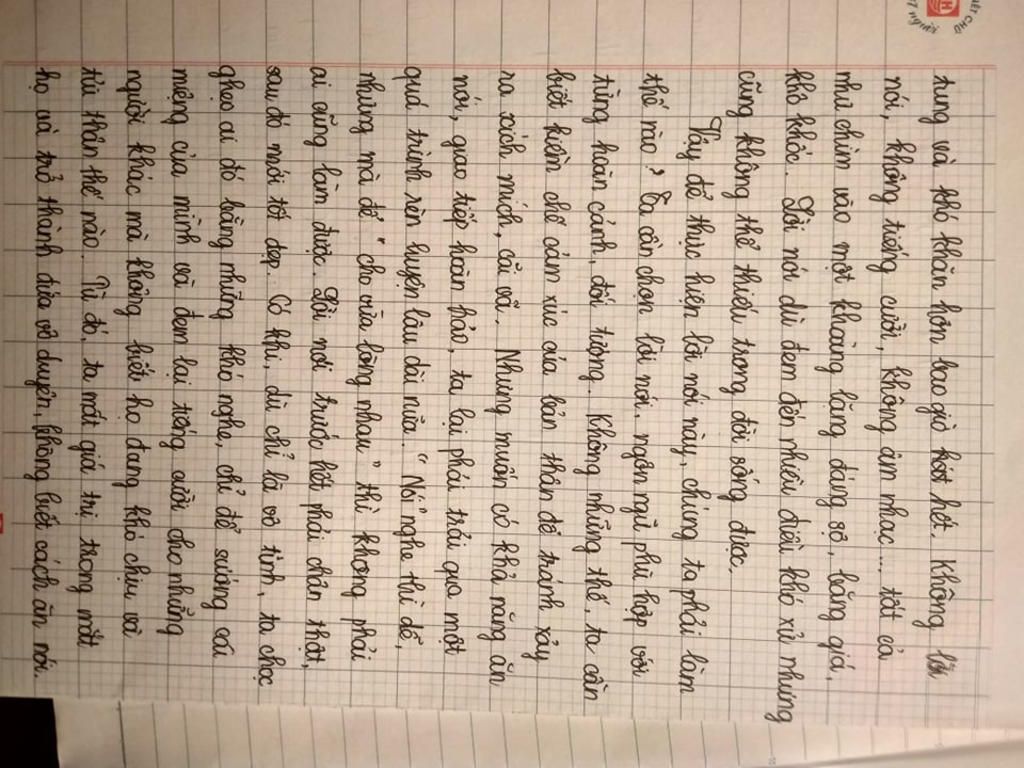 tung và khó khăn hơn bao giờ hết hết. Không lời
nói, không tiếng cười, không âm nhạc... tất cả
như chìm vào một khoảng lặng đáng sợ, băng giá,
khô khốc. Lời nói dù đem đến nhiều điều khó xử nhưng
cũng không thể thiếu trong đời sống được.
Vậy để thực hiện lời nói này, chúng ta phải làm
thế nào? Ta cần chọn lời nói, ngôn ngữ phù hợp với
từng hoàn cảnh, đối tượng. Không những thế, ta cần
biết kiềm chế cảm xúc của bản thân để tránh xảy
ra xích mích, cãi vã. Nhưng muốn có khả năng ăn
nói, giao tiếp hoàn hảo, ta lại phải trải qua một
quá trình rèn luyện lâu dài nữa. "Nói" nghe thì dễ,
nhưng mà để "cho vừa lòng nhau" thì không phải
ai cũng làm được. Lời nói trước hết phải chân thật,
sau đó mới tốt đẹp. Có khi, dù chỉ là vô tình, ta chọc
ghẹo ai đó bằng những khó nghe, chỉ để sướng cái
miệng của mình và đem lại tiếng cười cho những
người khác mà không biết họ đang khó chịu và
tủi thân thế nào. Từ đó, ta mất giá trị trong mắt
họ và trở thành đứa vô duyên, không biết cách ăn nói.
VIẾT CHỮ
NGƯỜI